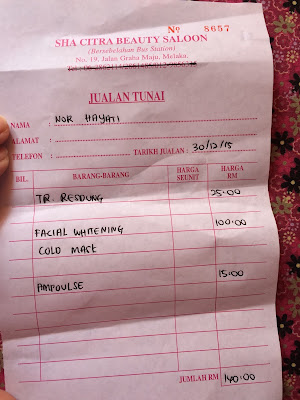 No 8657
SHA CITRA BEAUTY SALOON
(Bersebelahan Bus Station)
No. 19, Jalan Graha Maju, Melaka.
JUALAN TUNAI
NAMA : NOR HAYATI
ALAMAT :
TELEFON : TARIKH JUALAN : 30/12/15
BIL. BARANG-BARANG HARGA SEUNIT HARGA RM
TR. RESDUNG 25.00
FACIAL WHITENING 100.00
COLD MASK
AMPOULSE 15.00
JUMLAH RM 140.00